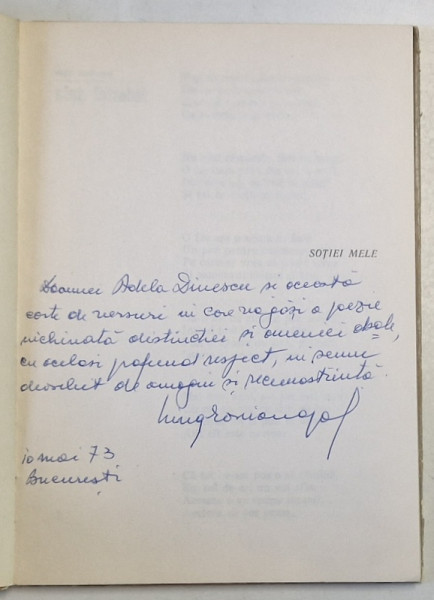 SOŢIEI MELE
Doamnei Adela Dinescu și această
carte de versuri în care va găsi o poezie
închinată distincției și omeniei
cu același profund respect, în semn
deosebit de omagiu și recunoștință.
10 mai 73
București